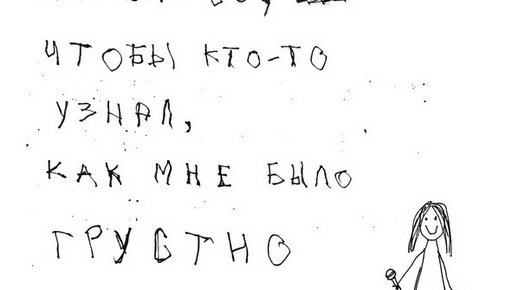 ЧТОБЫ КТО-ТО
УЗНАЛ,
КАК МНЕ БЫЛО
ГРУСТНО